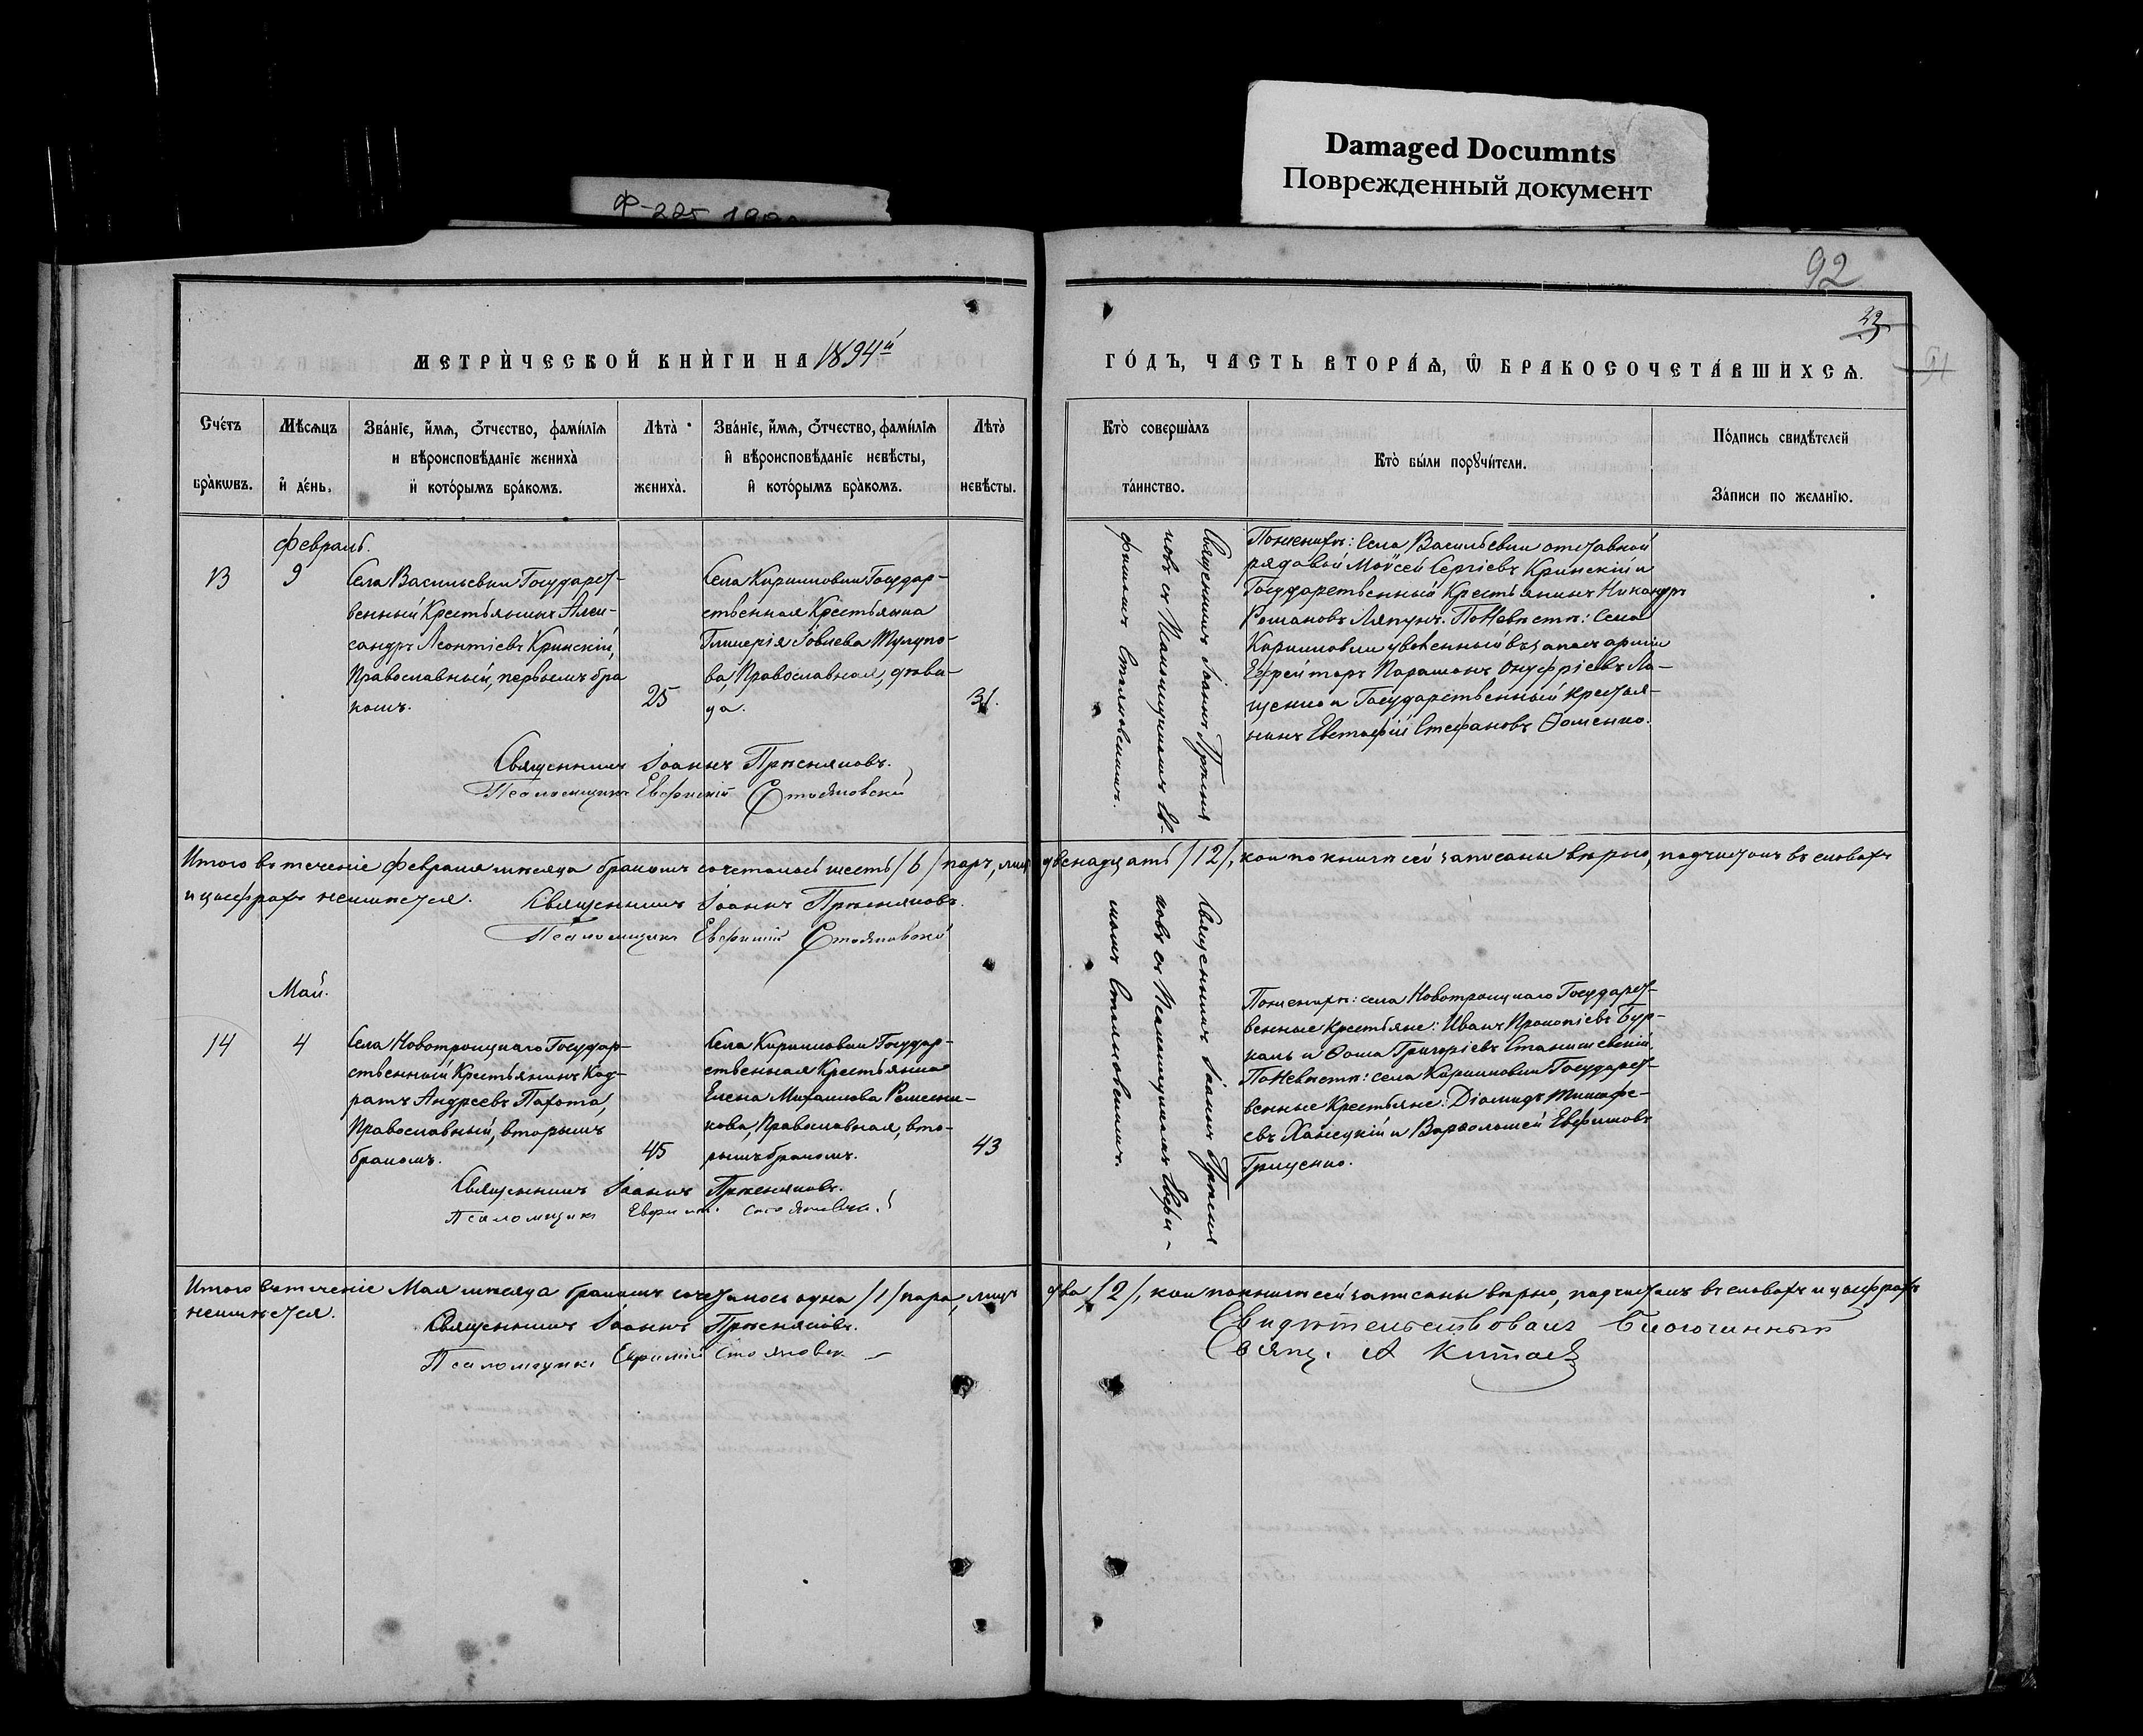 Damaged Documnts
Поврежденный документ
Ф-225
92
МЕТРИ́ЧЕСКОЙ КНИ́ГИ НА 1894й
ГО́ДЪ, ЧАСТЬ ВТОРА́Ѧ, Ѿ БРАКОСОЧЕТА́ВШИХСѦ.
Сче́тъ бра́кѡвъ.
Мѣ́сѧцъ и҆ де́нь.
Зва́нїе, и҆́мѧ, ѻ҆́тчество, фами́лїѧ
и вѣроисповѣ́данїе жениха̀
и҆ кото́рымъ бра́комъ.
Лѣта̀ жениха̀.
Зва́нїе, и҆́мѧ, ѻ҆́тчество, фами́лїѧ
и҆ вѣроисповѣ́данїе невѣ́сты,
и҆ кото́рымъ бра́комъ.
Лѣта̀ невѣ́сты.
Кто̀ соверша́лъ та́инство.
Кто̀ бы́ли порꙋчи́тели.
По́дпись свидѣ́телей
За́писи по жела́нїю.
Февраль.
13
9
Села Васильевки Государст-
венный Крестьянинъ Алек-
сандръ Леонтіевъ Кринскій,
Православный, первымъ бра
комъ.
25
Села Кирилловки Государ-
ственная Крестьянка
Гликерія Іовлева Тулупо-
ва, Православная, дѣви-
ца.
31.
Священникъ Іоаннъ Прѣсня
ковъ съ Псаломщикомъ Ев-
фиміемъ Стояновскимъ.
По женихѣ: Села Васильевки отставной
рядовой Моѵсей Сергіевъ Кринскій и
Государственный Крестьянинъ Никандръ
Романовъ Ляпунъ. По Невѣстѣ: Села
Кирилловки уволенный въ запасъ арміи
Ефрейторъ Парамонъ Онуфріевъ Ла-
щенко и Государственный крестья-
нинъ Евстафій Стефановъ Ѳоменко.
Священникъ Іоаннъ Прѣсняковъ.
Псаломщикъ Евфимій Стояновскій
Итого въ теченіе Февраля мѣсяца бракомъ сочеталось шесть /6/ паръ, лицъ двенадцать /12/, кои по книгѣ сей записаны вѣрно, подчистокъ въ словахъ
и цыфрахъ неимѣется.
Священникъ Іоаннъ Прѣсняковъ.
Псаломщикъ Евфимій Стояновскій
Май.
14
4
Села Новотроицкаго Государ-
ственный Крестьянинъ Код-
ратъ Андреевъ Пахота,
Православный, вторымъ
бракомъ.
45
Села Кирилловки Государ-
ственная Крестьянка
Елена Михаилова Решетни-
кова, Православная, вто-
рымъ бракомъ.
43
Священникъ Іоаннъ Прѣсня
ковъ съ Псаломщикомъ Евфи-
міемъ Стояновскимъ.
По женихѣ: села Новотроицкаго Государст-
венные крестьяне: Иванъ Прокопіевъ Бур-
каль и Ѳома Григоріевъ Станишевскій.
По Невѣстѣ: села Кирилловки Государст-
венные Крестьяне: Діомидъ Тимофе-
евъ и Варѳоломей Евфимовъ
Гриценко.
Священникъ Іоаннъ Прѣсняковъ.
Псаломщикъ Евфимій Стояновскій
Итого въ теченіе Мая мѣсяца бракомъ сочеталось одна /1/ пара, лицъ два /2/, кои по книгѣ сей записаны вѣрно, подчистокъ въ словахъ и цыфрахъ
неимѣется.
Священникъ Іоаннъ Прѣсняковъ.
Псаломщикъ Евфимій Стояновск
Свидѣтельствовалъ Благочинный
Свящ. А Китаев